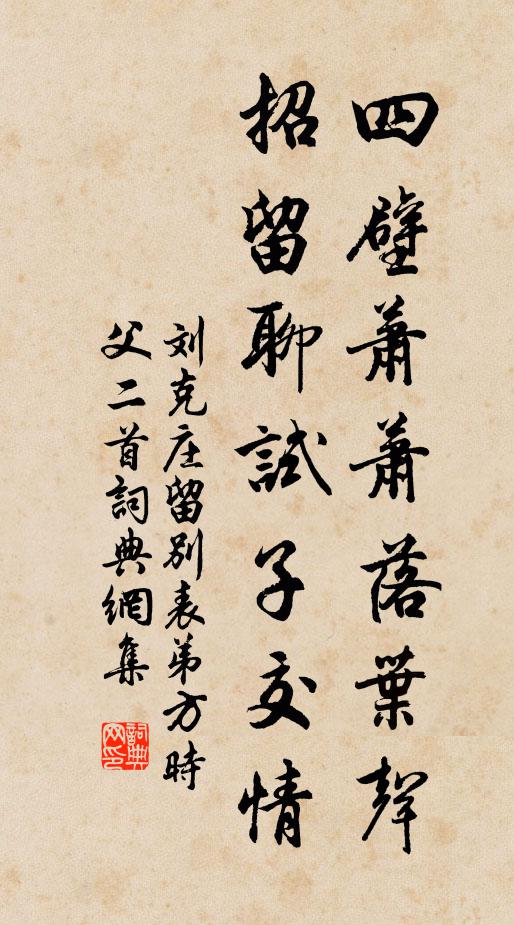 四壁蕭蕭落葉聲
招留聊試子交情
刘克庄留别表弟方時
父二首詞典網集
詞典网印